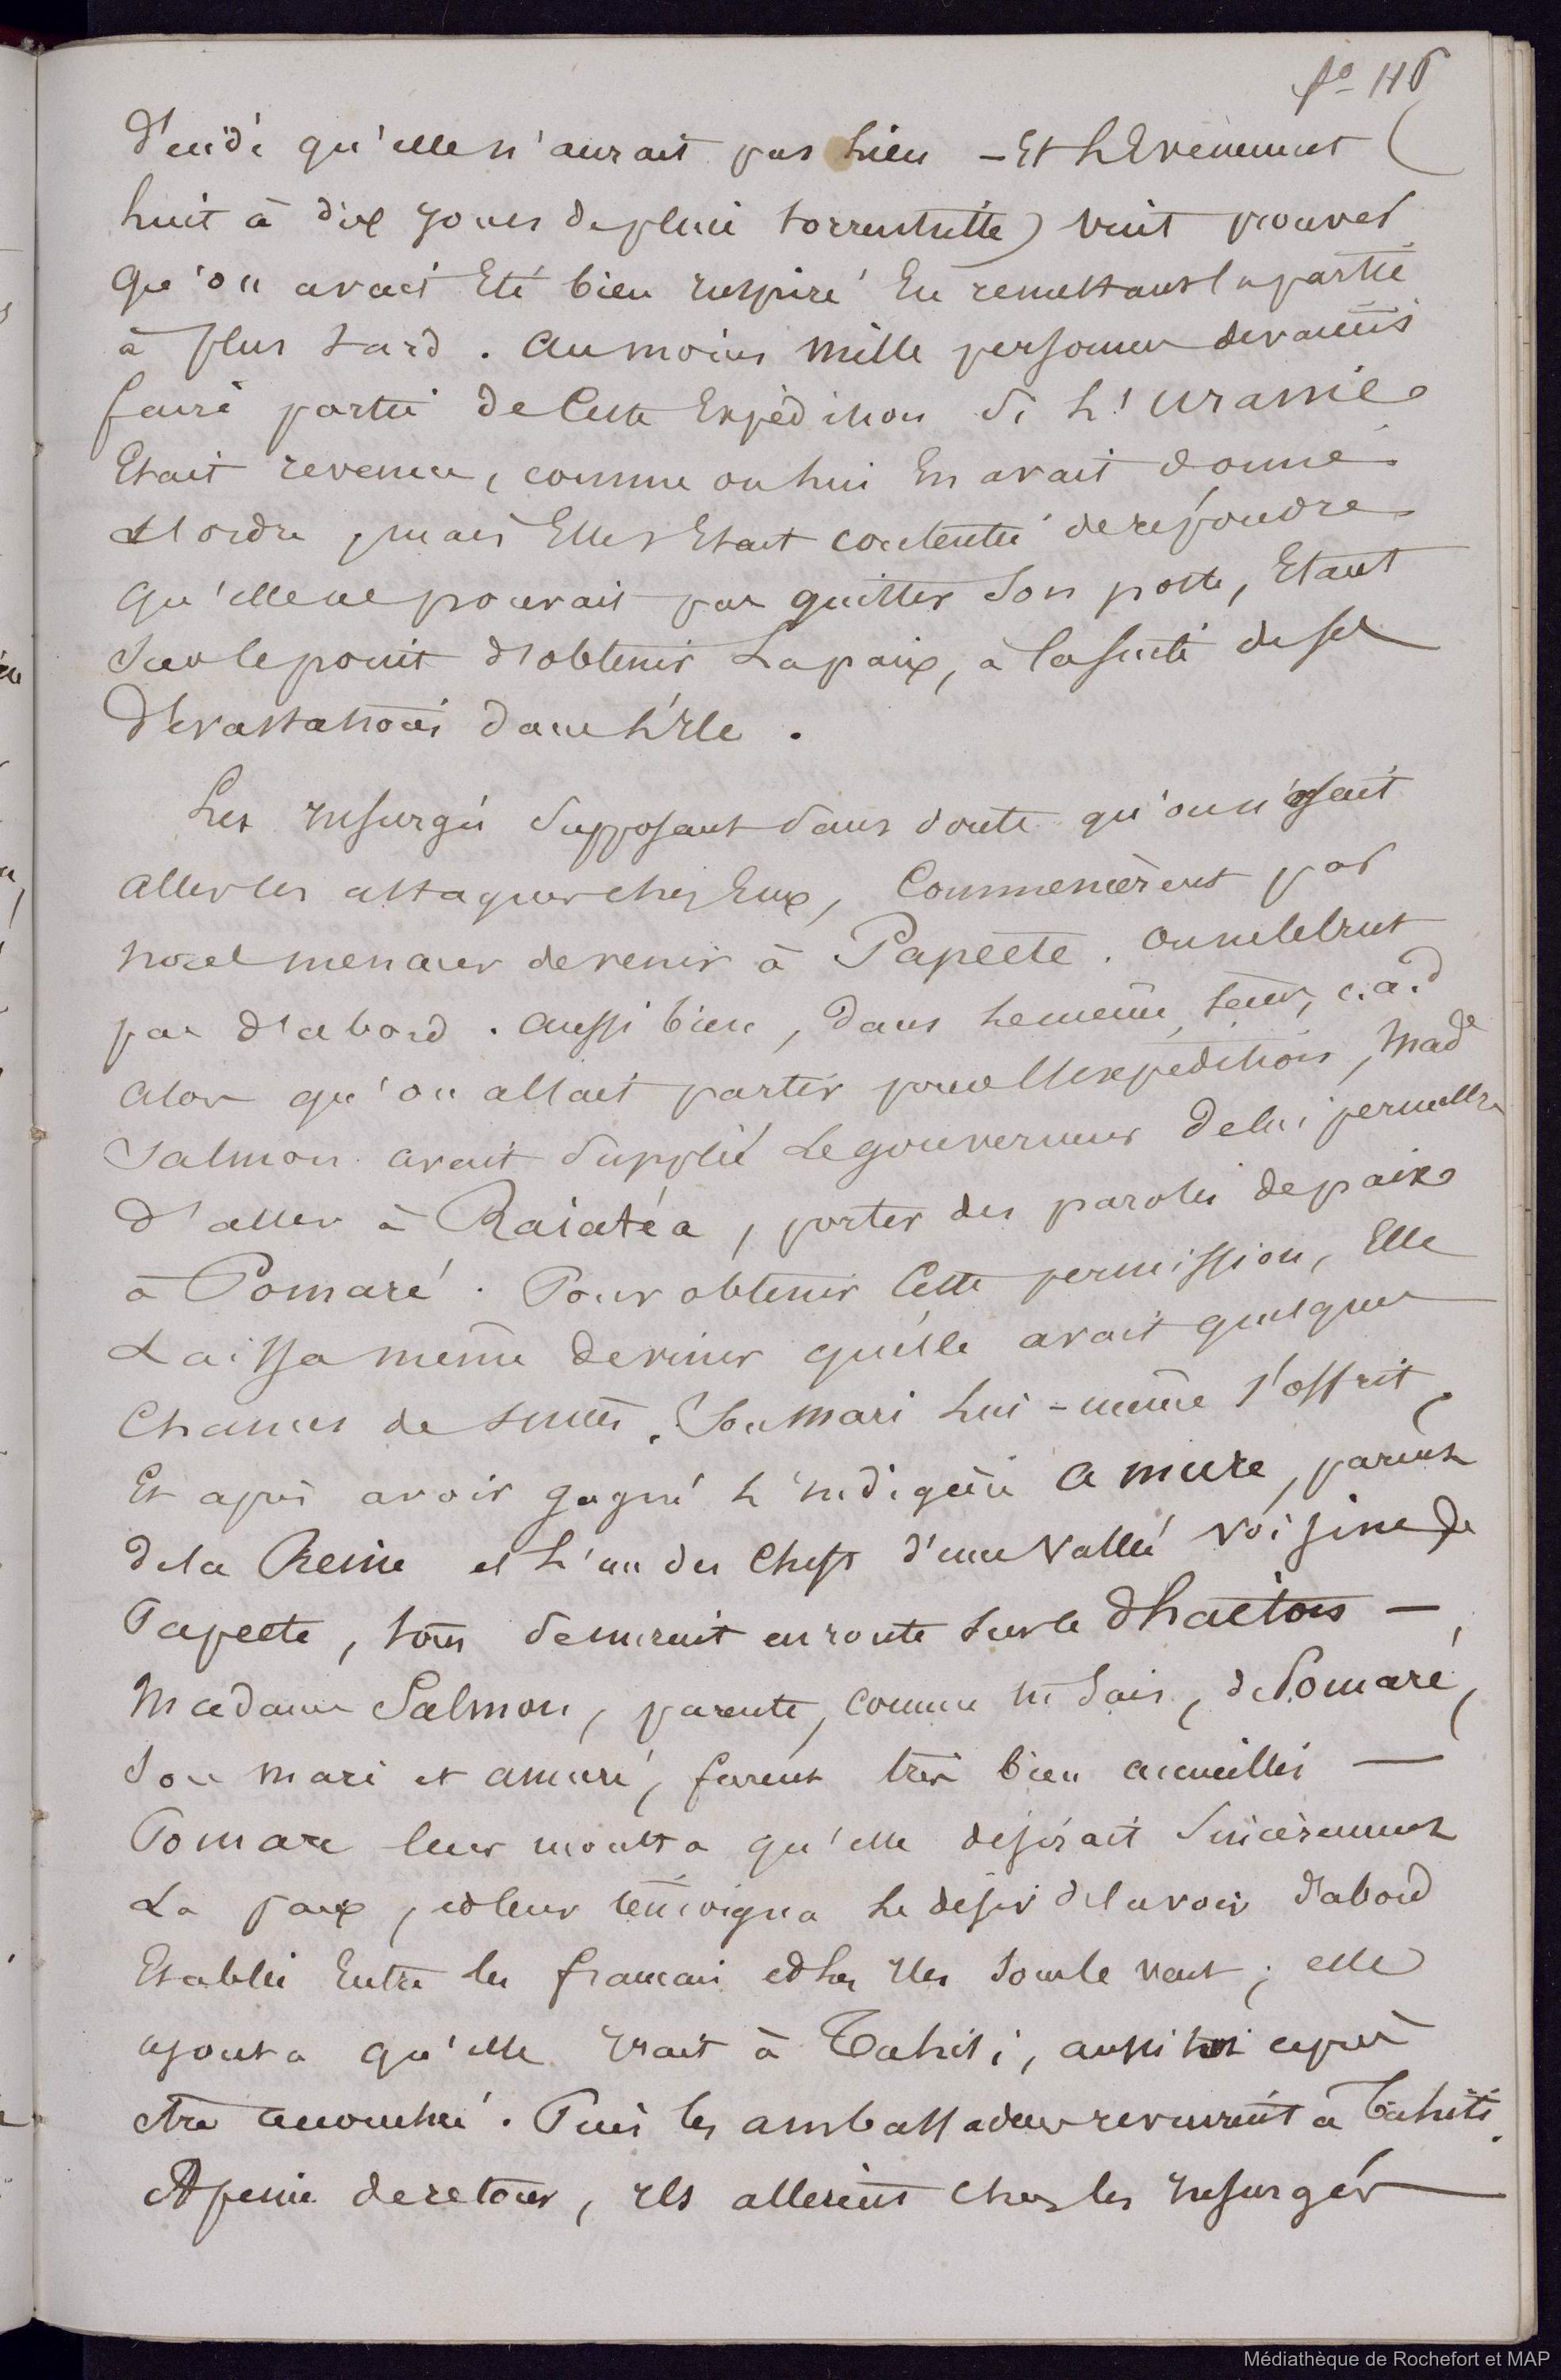 fo 116
décidé qu'elle n'aurait pas lieu - Et L'Evènement (
huit à dix jours de pluie torrentielle) vint prouver
Qu'on avait Eté bien inspiré En remettant la partie
à plus tard. Au moins Mille personnes devaient
faire partie de Cette Expédition Si L'Uranie
Etait revenue, comme on lui En avait donné
l'ordre, mais Elle s'Etait contentée de répondre
Qu'elle ne pouvait pas quitter Son poste, Etant
Sur le point d'obtenir La paix, à la suite de ses
Dévastations dans L'Ile.
Les Insurgés Supposant Sans doute qu'on n'osait
Aller les attaquer chez Eux, Commencèrent par
nous menacer de venir à Papeete. On ne le crut
pas d'abord. Aussi bien, dans le même tems, c.a.d
Alors qu'on allait partir pour l'Expédition, Made
Salmon avait Supplié Le gouverneur De lui permettre
D'aller à Raiatéa, porter des paroles de paix
à Pomaré. Pour obtenir Cette permission, Elle
Laissa même deviner qu'elle avait quelques
Chances de succès. Son Mari Lui-même s'offrit,
Et après avoir gagné L'Indigène Amure, parent
de la Reine et L'un des Chefs d'une Vallée Voisine de
Papeete, tous Se mirent en route sur le Phaëton -
Madame Salmon, parente, comme tu Sais, de Pomaré,
Son mari et Amuré, furent très bien accueillis -
Pomare leur montra qu'elle désirait Sincèrement
La paix, et leur témoigna Le désir de la voir d'abord
Etablie Entre les français et les Iles Sous le vent; elle
ajouta qu'elle Irait à Tahiti, aussitôt après
être accouchée. Puis les ambassadeurs revinrent à Tahiti.
A peine de retour, Ils allèrent chez les Insurgés
Médiathèque de Rochefort et MAP